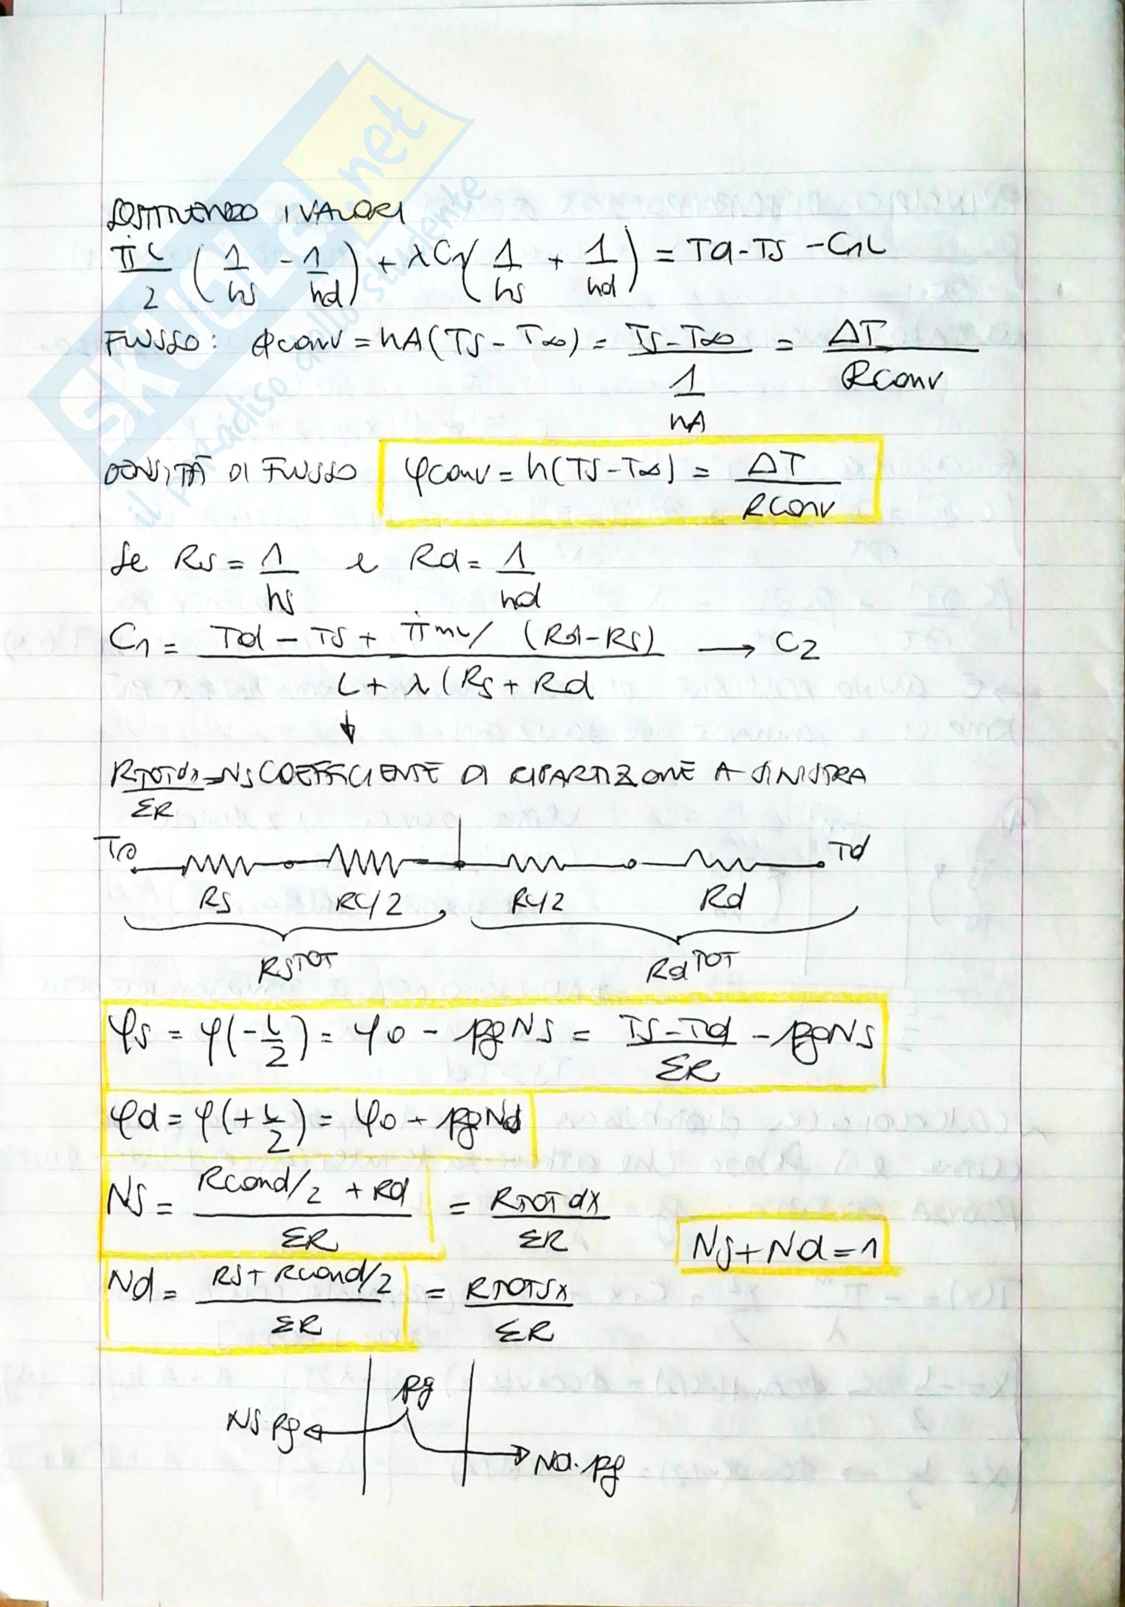 SKUOLA.net
il paradiso dello studente
SOSTITUENDO I VALORI
π̇L/2 (1/hs - 1/hd) + λC1(1/hs + 1/hd) = Td-TS - C1L
FLUSSO: ϕconv = hA(TS - T∞) = TS-T∞ / 1/hA = ΔT / Rconv
DENSITÀ DI FLUSSO φconv = h(TS-T∞) = ΔT / Rconv
Se Rs = 1/hs e Rd = 1/hd
C1 = Td - TS + π̇'''L/ (Rd-Rs) / L + λ (Rs + Rd → C2
↓
RTOTdx/ΣR = Ns COEFFICIENTE DI RIPARTIZIONE A SINISTRA
Td
Rs RC/2 RC/2 Rd
RsTOT RdTOT
φs = φ(-L/2) = φ0 - pgNs = TS-Td / ΣR - pgNs
φd = φ(+L/2) = φ0 + pgNd
Ns = Rcond/2 + Rd / ΣR = RTOTdx / ΣR
Ns+Nd=1
Nd = Rs + Rcond/2 / ΣR = RTOTsx / ΣR
pg
Ns pg
Nd·pg